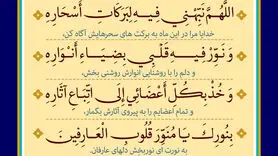 اَللّهُمَّ نَبِّهْنِي فِيهِ لِبَرَكَاتِ أَسْحَارِهِ
خدایا مرا در این ماه به برکت های سحرهایش آگاه کن،
وَ نَوِّرْ فِيهِ قَلْبِي بِضِيَاءِ أَنْوَارِهِ
و دلم را با روشنایی انوارش روشنی بخش،
وَ خُذْ بِكُلِّ أَعْضَائِي إِلَى اتِّبَاعِ آثَارِهِ
و تمام اعضایم را به پیروی آثارش بگمار،
بِنُورِكَ يَا مُنَوِّرَ قُلُوبِ الْعَارِفِينَ
به نورت ای نوربخش دلهای عارفان.